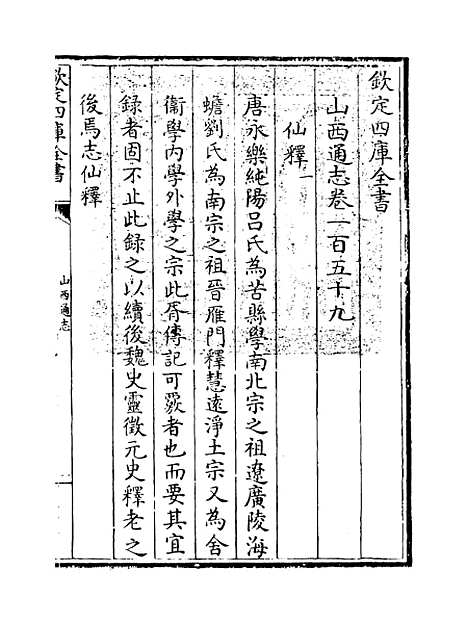 欽定四庫全書
山西通志卷一百五十九
仙釋一
唐永樂純陽吕氏為苦縣學南北宗之祖遼廣陵海
蟾劉氏為南宗之祖晉雁門釋慧遠淨土宗又為舍
衞學内學外學之宗此胥傳記可覈者也而要其宜
録者固不止此録之以續後魏史靈徵元史釋老之
後焉志仙釋
欽定四庫全書
山西通志